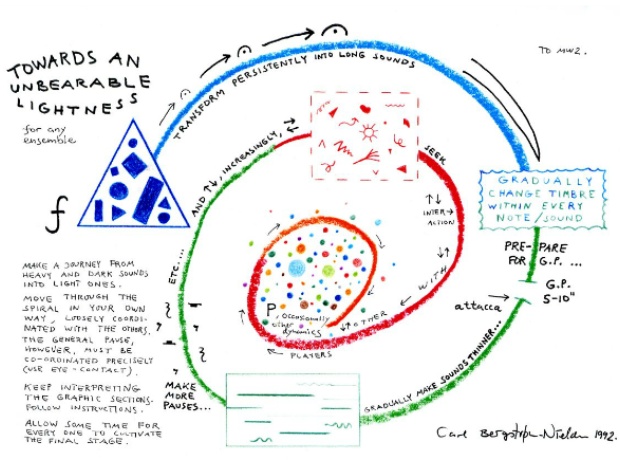 TOWARDS AN
UNBEARABLE
LIGHTNESS
for any
ensemble
TO MW2.
f
TRANSFORM PERSISTENTLY INTO LONG SOUNDS
GRADUALLY
CHANGE TIMBRE
WITHIN EVERY
NOTE/SOUND
PRE-PARE
FOR G.P. ...
G.P.
5-10"
attacca
GRADUALLY MAKE SOUNDS THINNER...
MAKE
MORE
PAUSES...
ETC....
AND ↑↓, INCREASINGLY,
SEEK
INTER-
ACTION
WITH
OTHER
PLAYERS
P, occasionally
other
dynamics
MAKE A JOURNEY FROM
HEAVY AND DARK SOUNDS
INTO LIGHT ONES.
MOVE THROUGH THE
SPIRAL IN YOUR OWN
WAY, LOOSELY COORDI-
NATED WITH THE OTHERS.
THE GENERAL PAUSE,
HOWEVER, MUST BE
CO-ORDINATED PRECISELY
(USE EYE-CONTACT).
KEEP INTERPRETING
THE GRAPHIC SECTIONS.
FOLLOW INSTRUCTIONS.
ALLOW SOME TIME FOR
EVERY ONE TO CULTIVATE
THE FINAL STAGE.
Carl Bergstrøm-Nielsen 1992.